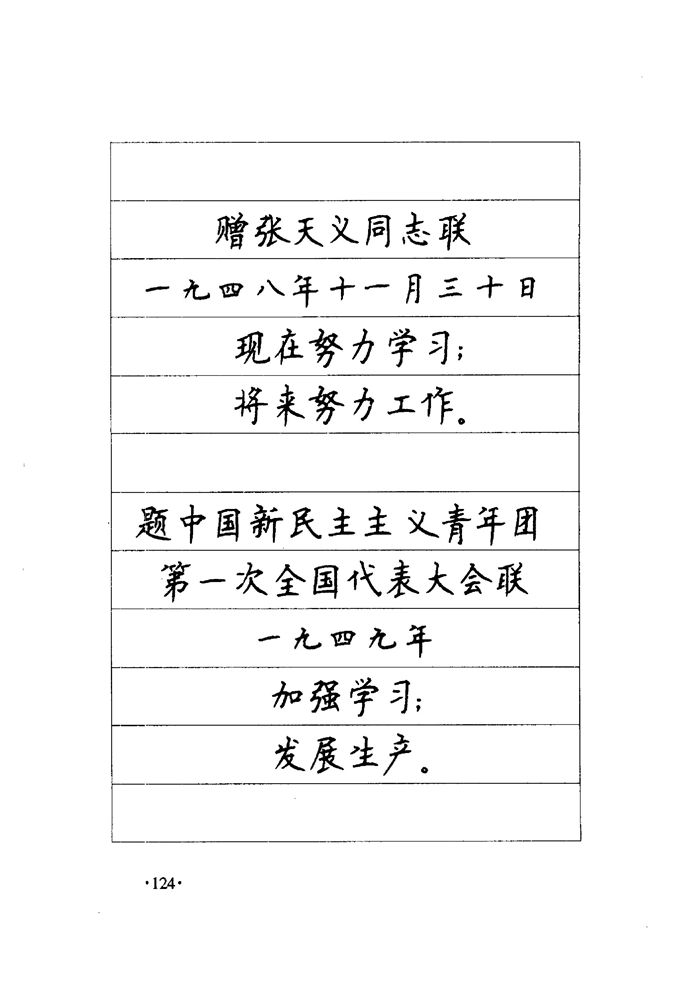 赠张天义同志联
一九四八年十一月三十日
现在努力学习；
将来努力工作。
题中国新民主主义青年团
第一次全国代表大会联
一九四九年
加强学习；
发展生产。
·124·